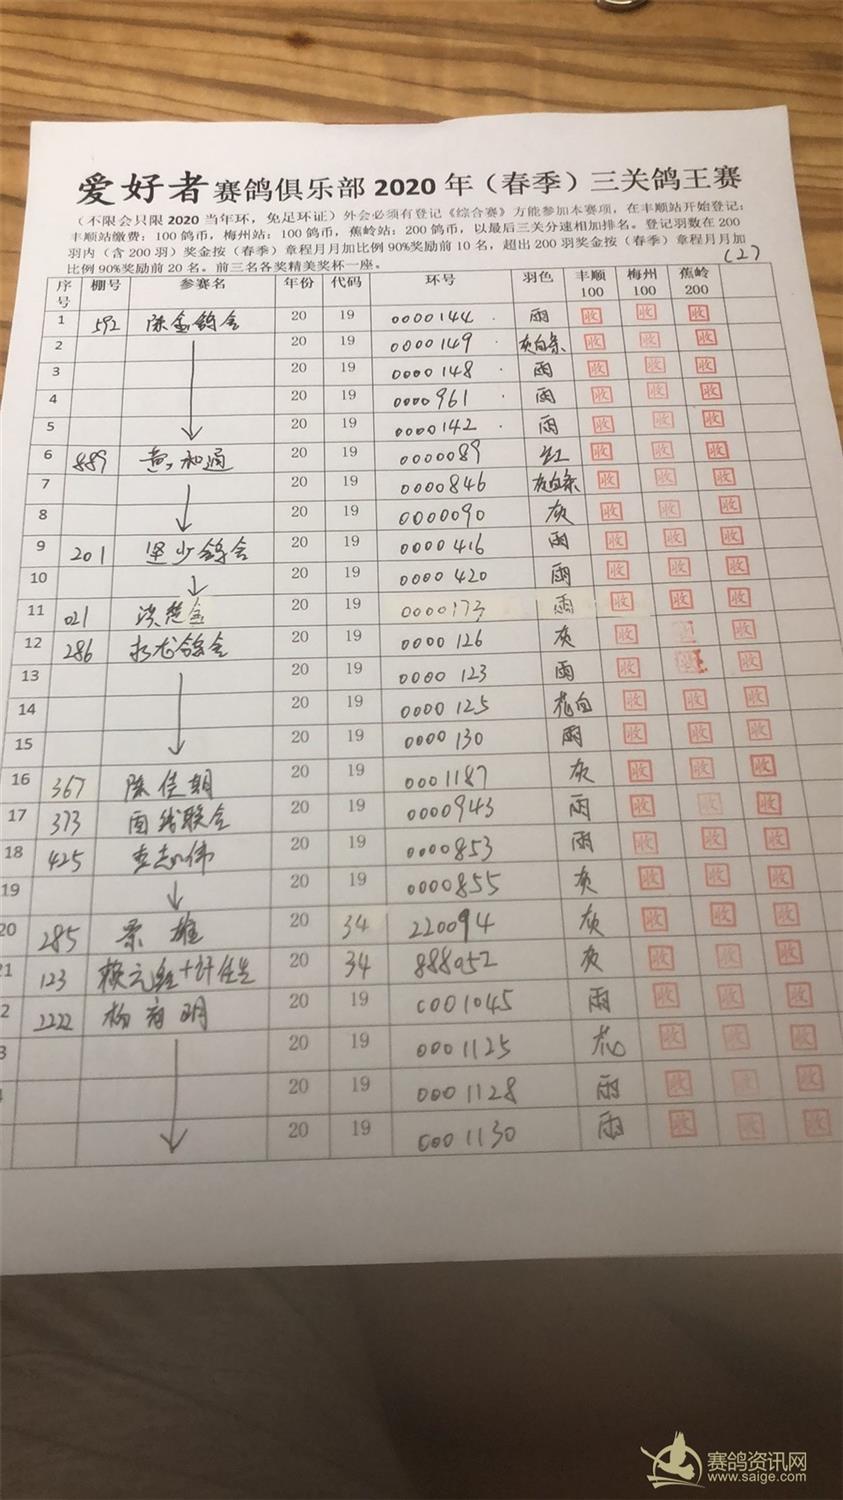 爱好者赛鸽俱乐部2020年（春季）三关鸽王赛
（不限会只限2020当年环，免足环证）外会必须有登记《综合赛》方能参加本赛项，在丰顺站开始登记；
丰顺站缴费：100鸽币，梅州站：100鸽币，蕉岭站：200鸽币，以最后三关分速相加排名。登记羽数在200
羽内（含200羽）奖金按（春季）章程月月加比例90%奖励前10名，超出200羽奖金按（春季）章程月月加
比例90%奖励前20名。前三名各奖精美奖杯一座。 (2)
序号 棚号 参赛名 年份 代码 环号 羽色 丰顺100 梅州100 蕉岭200
1 592 陈金鸽舍 20 19 0000144 雨 收 收 收
2 20 19 0000149 灰白条 收 收 收
3 20 19 0000148 雨 收 收 收
4 20 19 0000961 雨 收 收 收
5 20 19 0000142 雨 收 收 收
6 889 黄和通 20 19 0000089 红 收 收 收
7 20 19 0000846 灰白条 收 收 收
8 20 19 0000090 灰 收 收 收
9 201 坚少鸽舍 20 19 0000416 雨 收 收 收
10 20 19 0000420 雨 收 收 收
11 021 洪楚金 20 19 0000173 雨 收 收 收
12 286 龙鸽舍 20 19 0000126 灰 收 收 收
13 20 19 0000123 雨 收 收 收
14 20 19 0000125 花白 收 收 收
15 20 19 0000130 雨 收 收 收
16 367 陈佳朝 20 19 0001187 灰 收 收 收
17 373 联合 20 19 0000943 雨 收 收 收
18 425 李志伟 20 19 0000853 雨 收 收 收
19 20 19 0000855 灰 收 收 收
20 285 雄 20 34 220094 灰 收 收 收
21 123 20 34 888052 灰 收 收 收
2 2222 杨 明 20 19 0001045 雨 收 收 收
3 20 19 0001125 花 收 收 收
20 19 0001128 雨 收 收 收
20 19 0001130 雨 收 收 收
赛鸽资讯网
www.saige.com